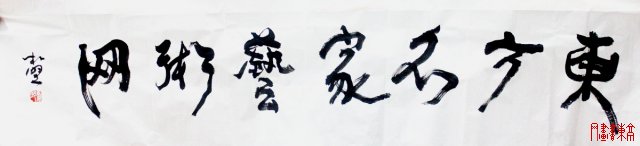 東方名家藝術网